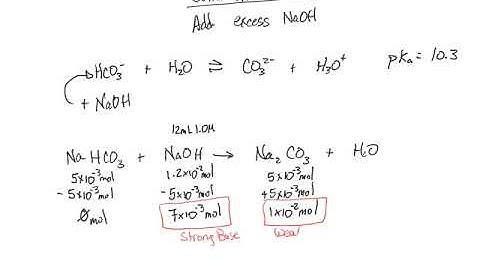 Add excess NaOH
HCO₃⁻ + H₂O ⇌ CO₃²⁻ + H₃O⁺ pKₐ = 10.3
+ NaOH
12mL 1.0M
NaHCO₃ + NaOH → Na₂CO₃ + H₂O
5x10⁻³mol 1.2x10⁻²mol 5x10⁻³mol
- 5x10⁻³mol - 5x10⁻³mol +5x10⁻³mol
0mol 7x10⁻³mol 1x10⁻²mol
Strong Base Weak